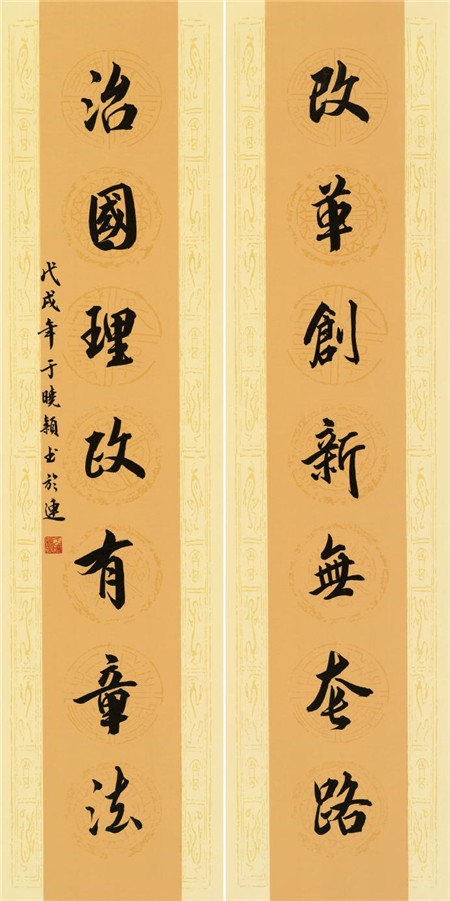 改革創新無套路
治國理政有章法
戊戌年于曉穎書於連